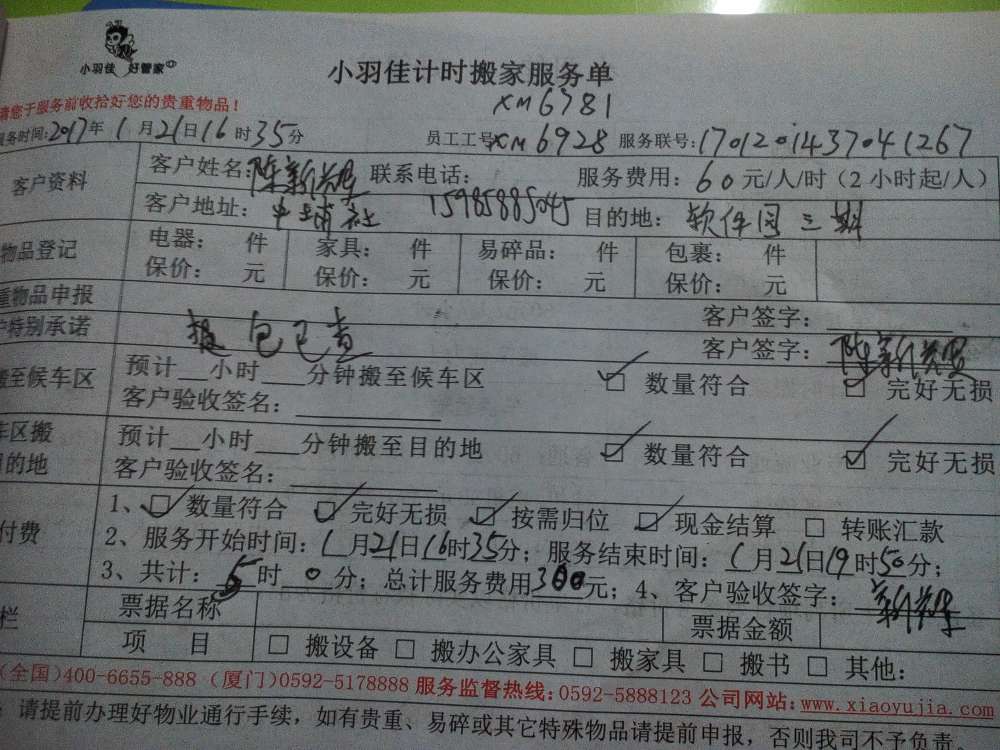 小羽佳 好管家
小羽佳计时搬家服务单
XM6781
请您于服务前收拾好您的贵重物品！
服务时间:2017年1月21日16时35分 员工工号XM6928 服务联号:1701201437041267
客户资料 客户姓名:陈新 联系电话: 服务费用:60元/人/时（2小时起/人）
客户地址: 中埔社 15985885045 目的地: 软件园三期
物品登记 电器: 件 家具: 件 易碎品: 件 包裹: 件
保价: 元 保价: 元 保价: 元 保价: 元
重物品申报 客户签字:
户特别承诺 提包已查 客户签字:陈新
搬至候车区 预计__小时___分钟搬至候车区 ☑ 数量符合 ☑ 完好无损
客户验收签名:
车区搬 预计__小时___分钟搬至目的地 ☑ 数量符合 ☑ 完好无损
目的地 客户验收签名:
付费 1、☑ 数量符合 ☑ 完好无损 ☑ 按需归位 ☑ 现金结算 □ 转账汇款
2、服务开始时间:1月21日16时35分；服务结束时间:1月21日19时50分；
3、共计: 5时 0分；总计服务费用300元；4、客户验收签字: 新
栏 票据名称 票据金额
项 目 □ 搬设备 □ 搬办公家具 □ 搬家具 □ 搬书 □ 其他:
(全国)400-6655-888 (厦门)0592-5178888 服务监督热线:0592-5888123 公司网站:www.xiaoyujia.com
请提前办理好物业通行手续，如有贵重、易碎或其它特殊物品请提前申报，否则我司不予负责